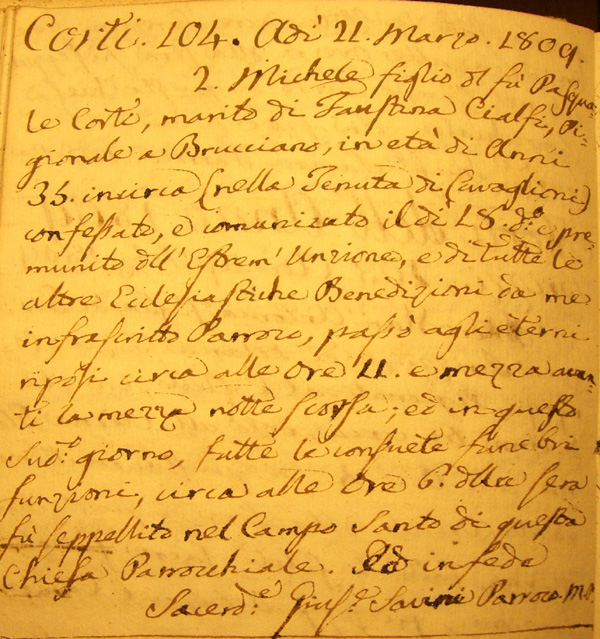 Corti. 104. Adì 21. Marzo. 1809.
2. Michele figlio dl fù Pasqua-
le Corti, marito di Faustina Cialfi, Pi-
gionale a Brucciano, in età di Anni
35. incirca (nella Tenuta di Cavaglioni)
confessato, e comunicato il dì 18 do. e pre-
munito dll' Estrem' Unzione, e di tutte le
altre Ecclesiastiche Benedizioni da me
infrascritto Parroco, passò agli eterni
riposi circa alle Ore 11. e mezza avan-
ti la mezza notte scorsa; ed in questo
sudo. giorno, fatte le consuete funebri
funzioni, circa alle Ore 6. dlla sera
fù seppellito nel Campo Santo di questa
Chiesa Parrocchiale. Ed in fede
Sacerd.e Gius.e Savini Parroco